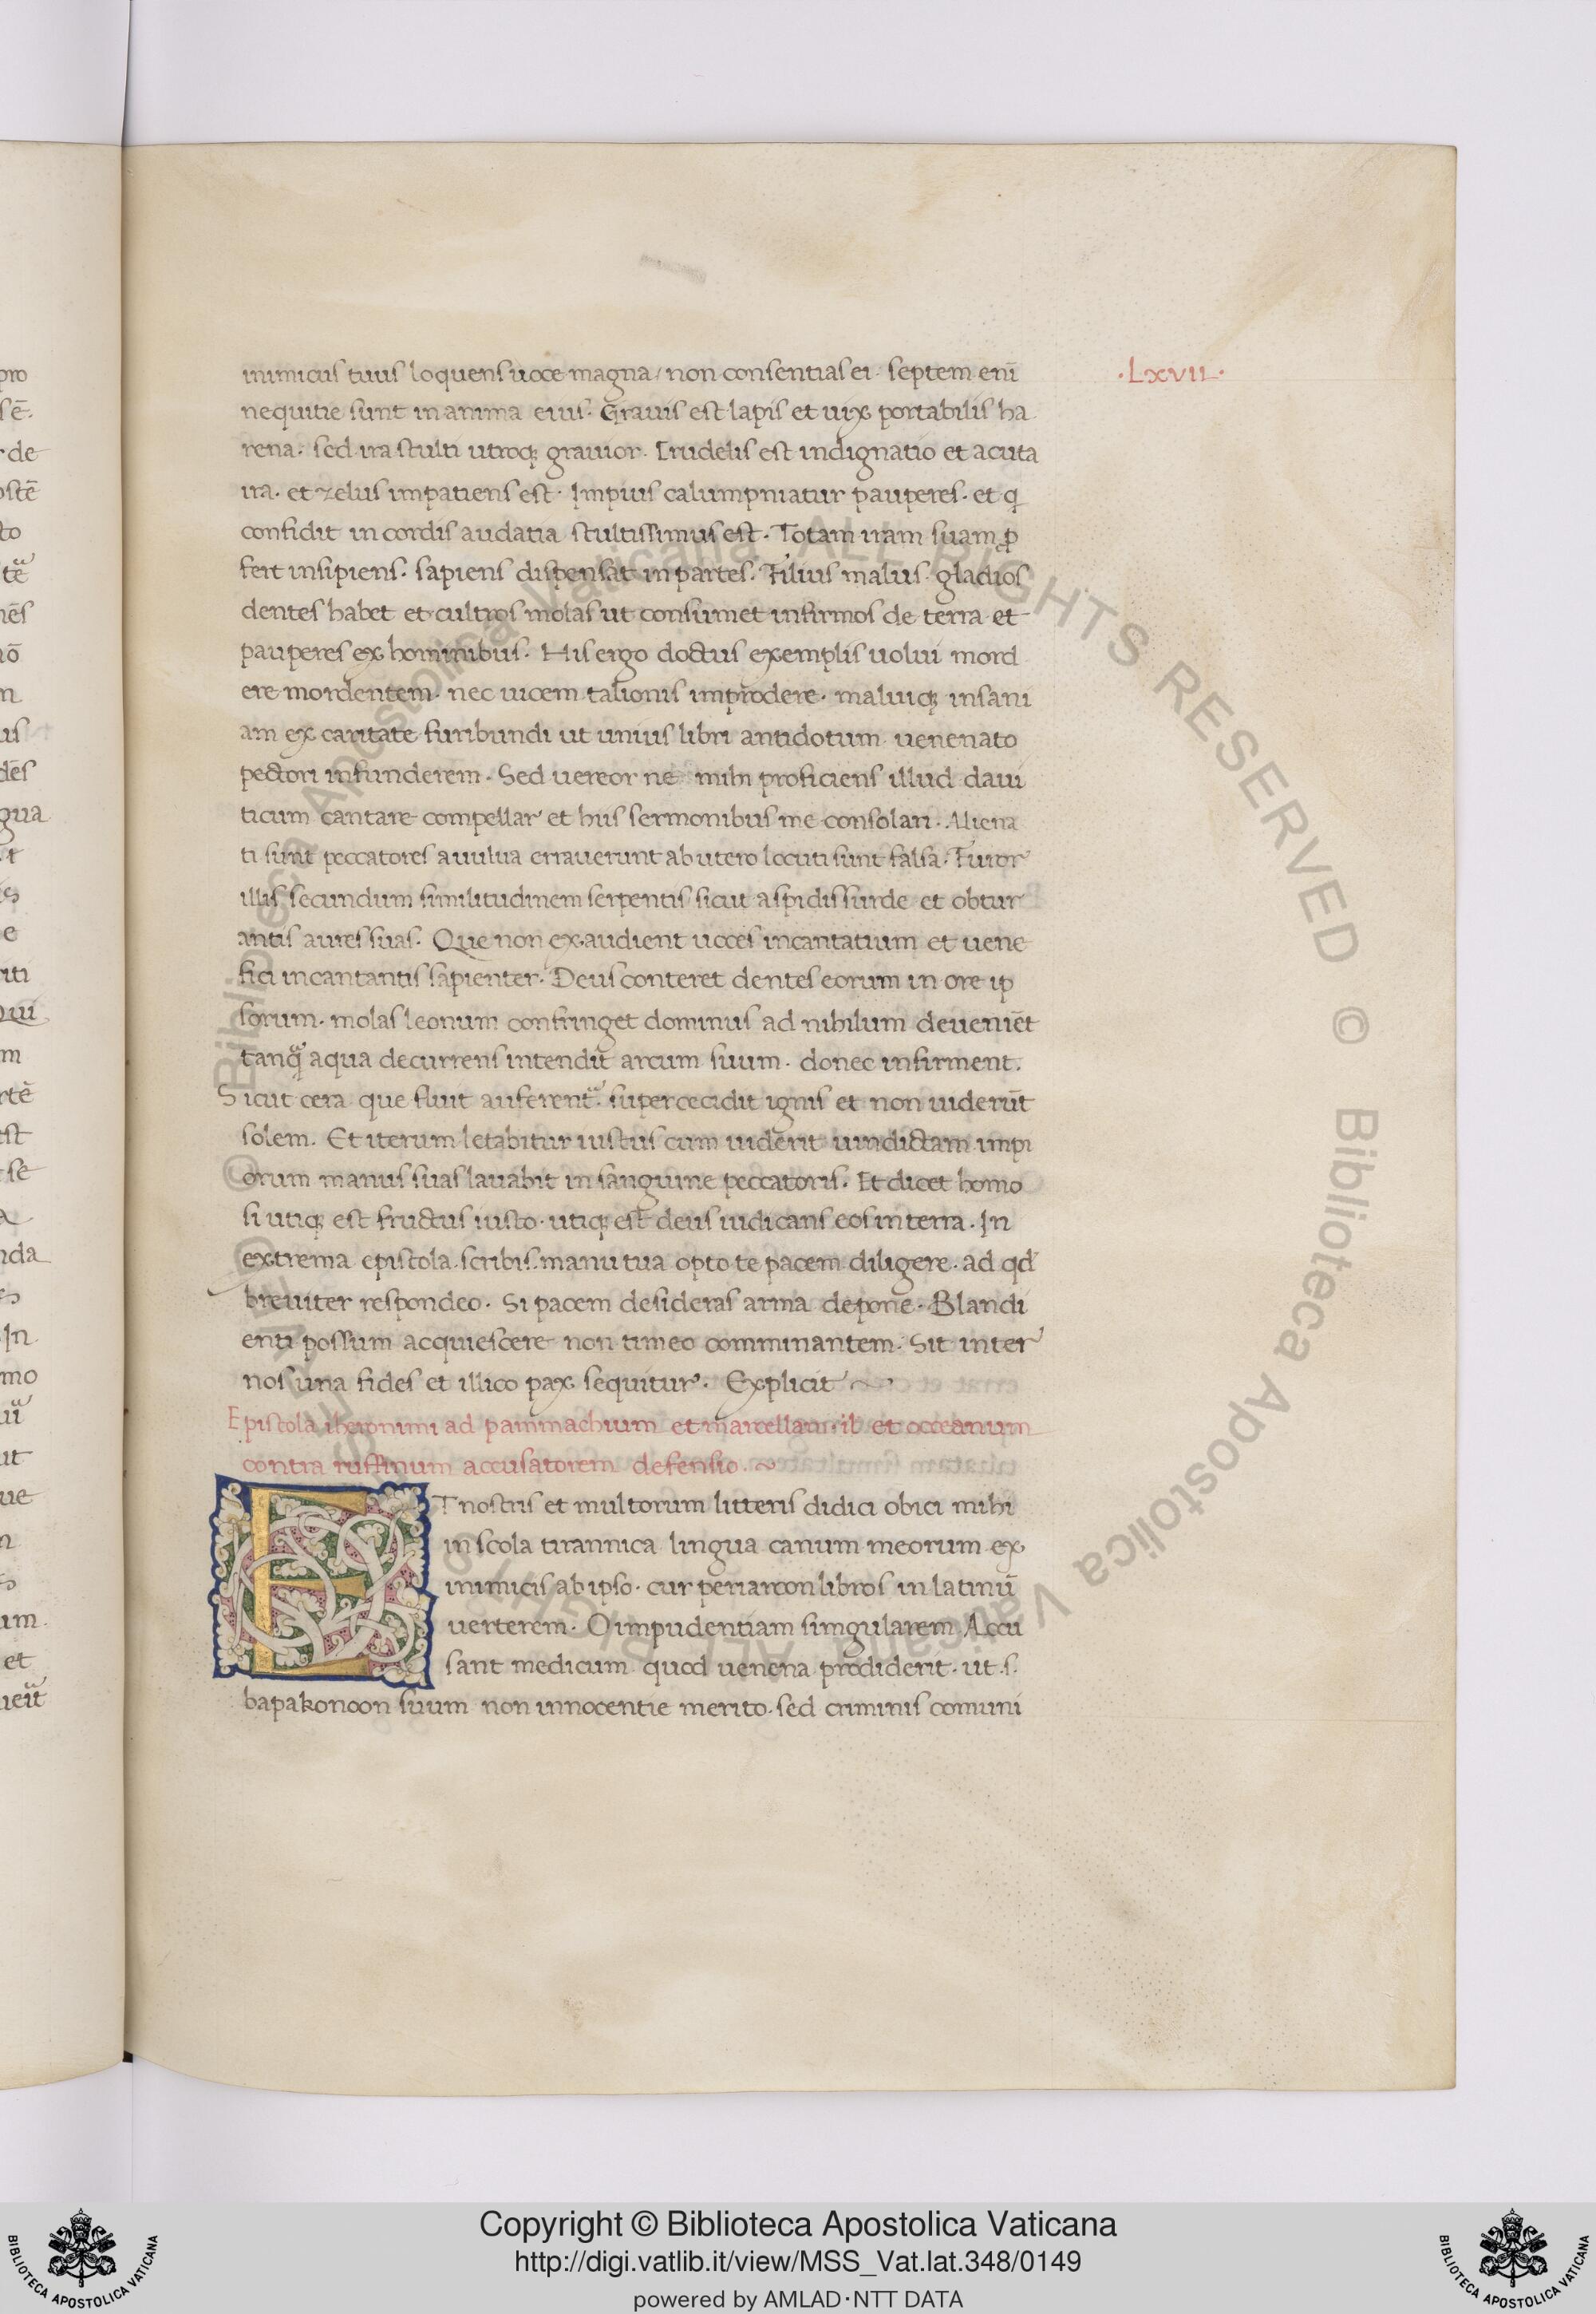 inimicus tuus loquens uoce magna / non consentias ei · septem enī
nequitie sunt in anima eius · Grauis est lapis et uix portabilis ha
rena · sed ira stulti utroqꝫ grauior · Crudelis est indignatio et acuta
ira · et zelus impatiens est · Impius calumpniatur pauperes · et q
confidit in cordis audatia stultissimus est · Totam iram suam ꝓ
fert insipiens · sapiens dispensat in partes · Filius malus gladios
dentes habet et cultros molas ut consumet infirmos de terra et
pauperes ex hominibus · His ergo doctus exemplis uolui mord
ere mordentem · nec uicem talionis improdere · maluiqꝫ insani
am ex caritate furibundi ut unius libri antidotum uenenato
pectori infunderem · Sed uereor ne mihi proficiens illud daui
ticum cantare compellar et hiis sermonibus me consolari · Aliena
ti sunt peccatores a uulua errauerunt ab utero locuti sunt falsa · Furor
illis secundum similitudinem serpentis sicut aspidis surde et obtur
antis aures suas · Que non exaudient uoces incantatium et uene
fici incantantis sapienter · Deus conteret dentes eorum in ore ip
sorum · molas leonum confringet dominus ad nihilum deueniēt
tanq̄ aqua decurrens intendit arcum suum · donec infirment.
Sicut cera que fluit auferent · supercecidit ignis et non uiderūt
solem · Et iterum letabitur iustus cum uiderit uindictam impi
orum manus suas lauabit in sanguine peccatoris · Et dicet homo
si utiqꝫ est fructus iusto · utiqꝫ est deus iudicans eos in terra · In
extrema epistola scribis manu tua opto te pacem diligere · ad qd
breuiter respondeo · Si pacem desideras arma depone · Blandi
enti possum acquiescere non timeo comminantem · Sit inter
nos una fides et illico pax sequitur · Explicit
Epistola iheronimi ad pammachium et marcellam · il et occeanum
contra ruffinum accusatorem defensio ·
ET nostris et multorum litteris didici obici mihi
in scola tirannica lingua canum meorum ex
inimicis ab ipso · cur periarcon libros in latinū
uerterem · O impudentiam singularem Accu
sant medicum quod uenena prodiderit · ut · s ·
bapakonoon suum non innocentie merito · sed criminis comuni
· LXVII ·
Copyright © Biblioteca Apostolica Vaticana
http://digi.vatlib.it/view/MSS_Vat.lat.348/0149
powered by AMLAD·NTT DATA
BIBLIOTECA APOSTOLICA VATICANA
BIBLIOTECA APOSTOLICA VATICANA